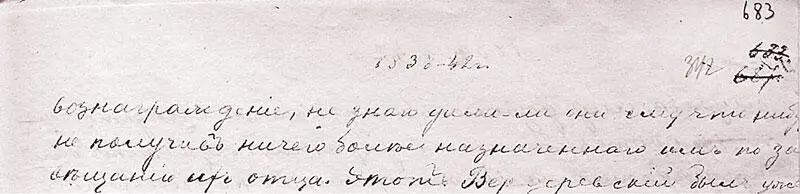 683
1836-42 г.
342
вознагражденіе, не знаю дали-ли они ему что нибу
не получивъ ничего болѣе назначеннаго имъ по за
вѣщанію ихъ отца. Этотъ Вердеревскій былъ